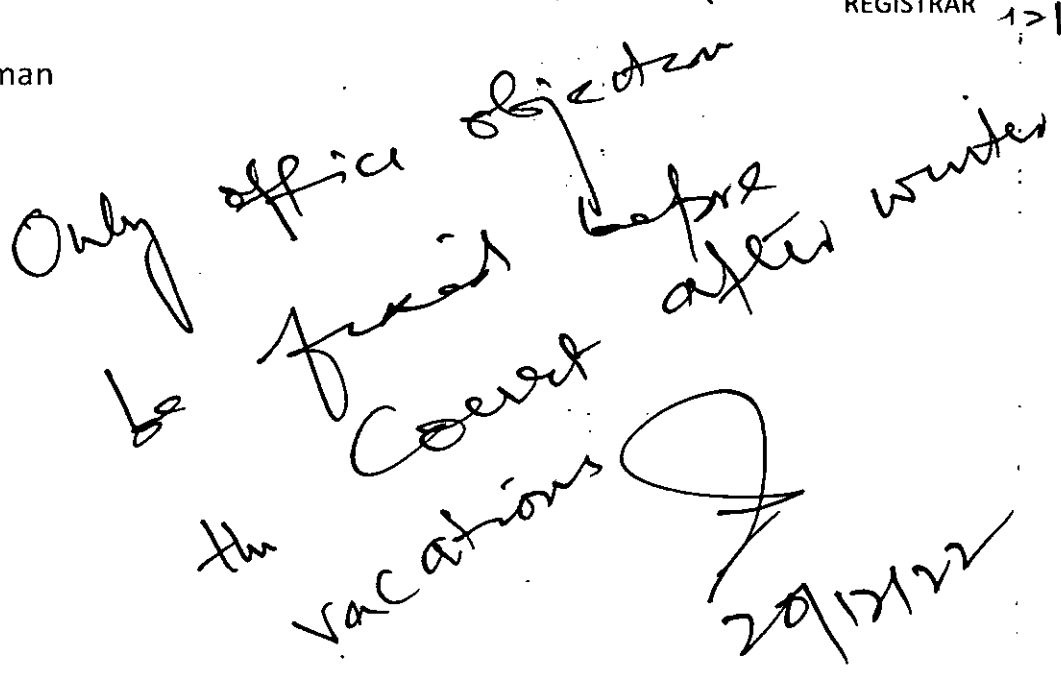 REGISTRAR
man
Only office objection
be fixed before
the Court after winter
vacations
20/12/22